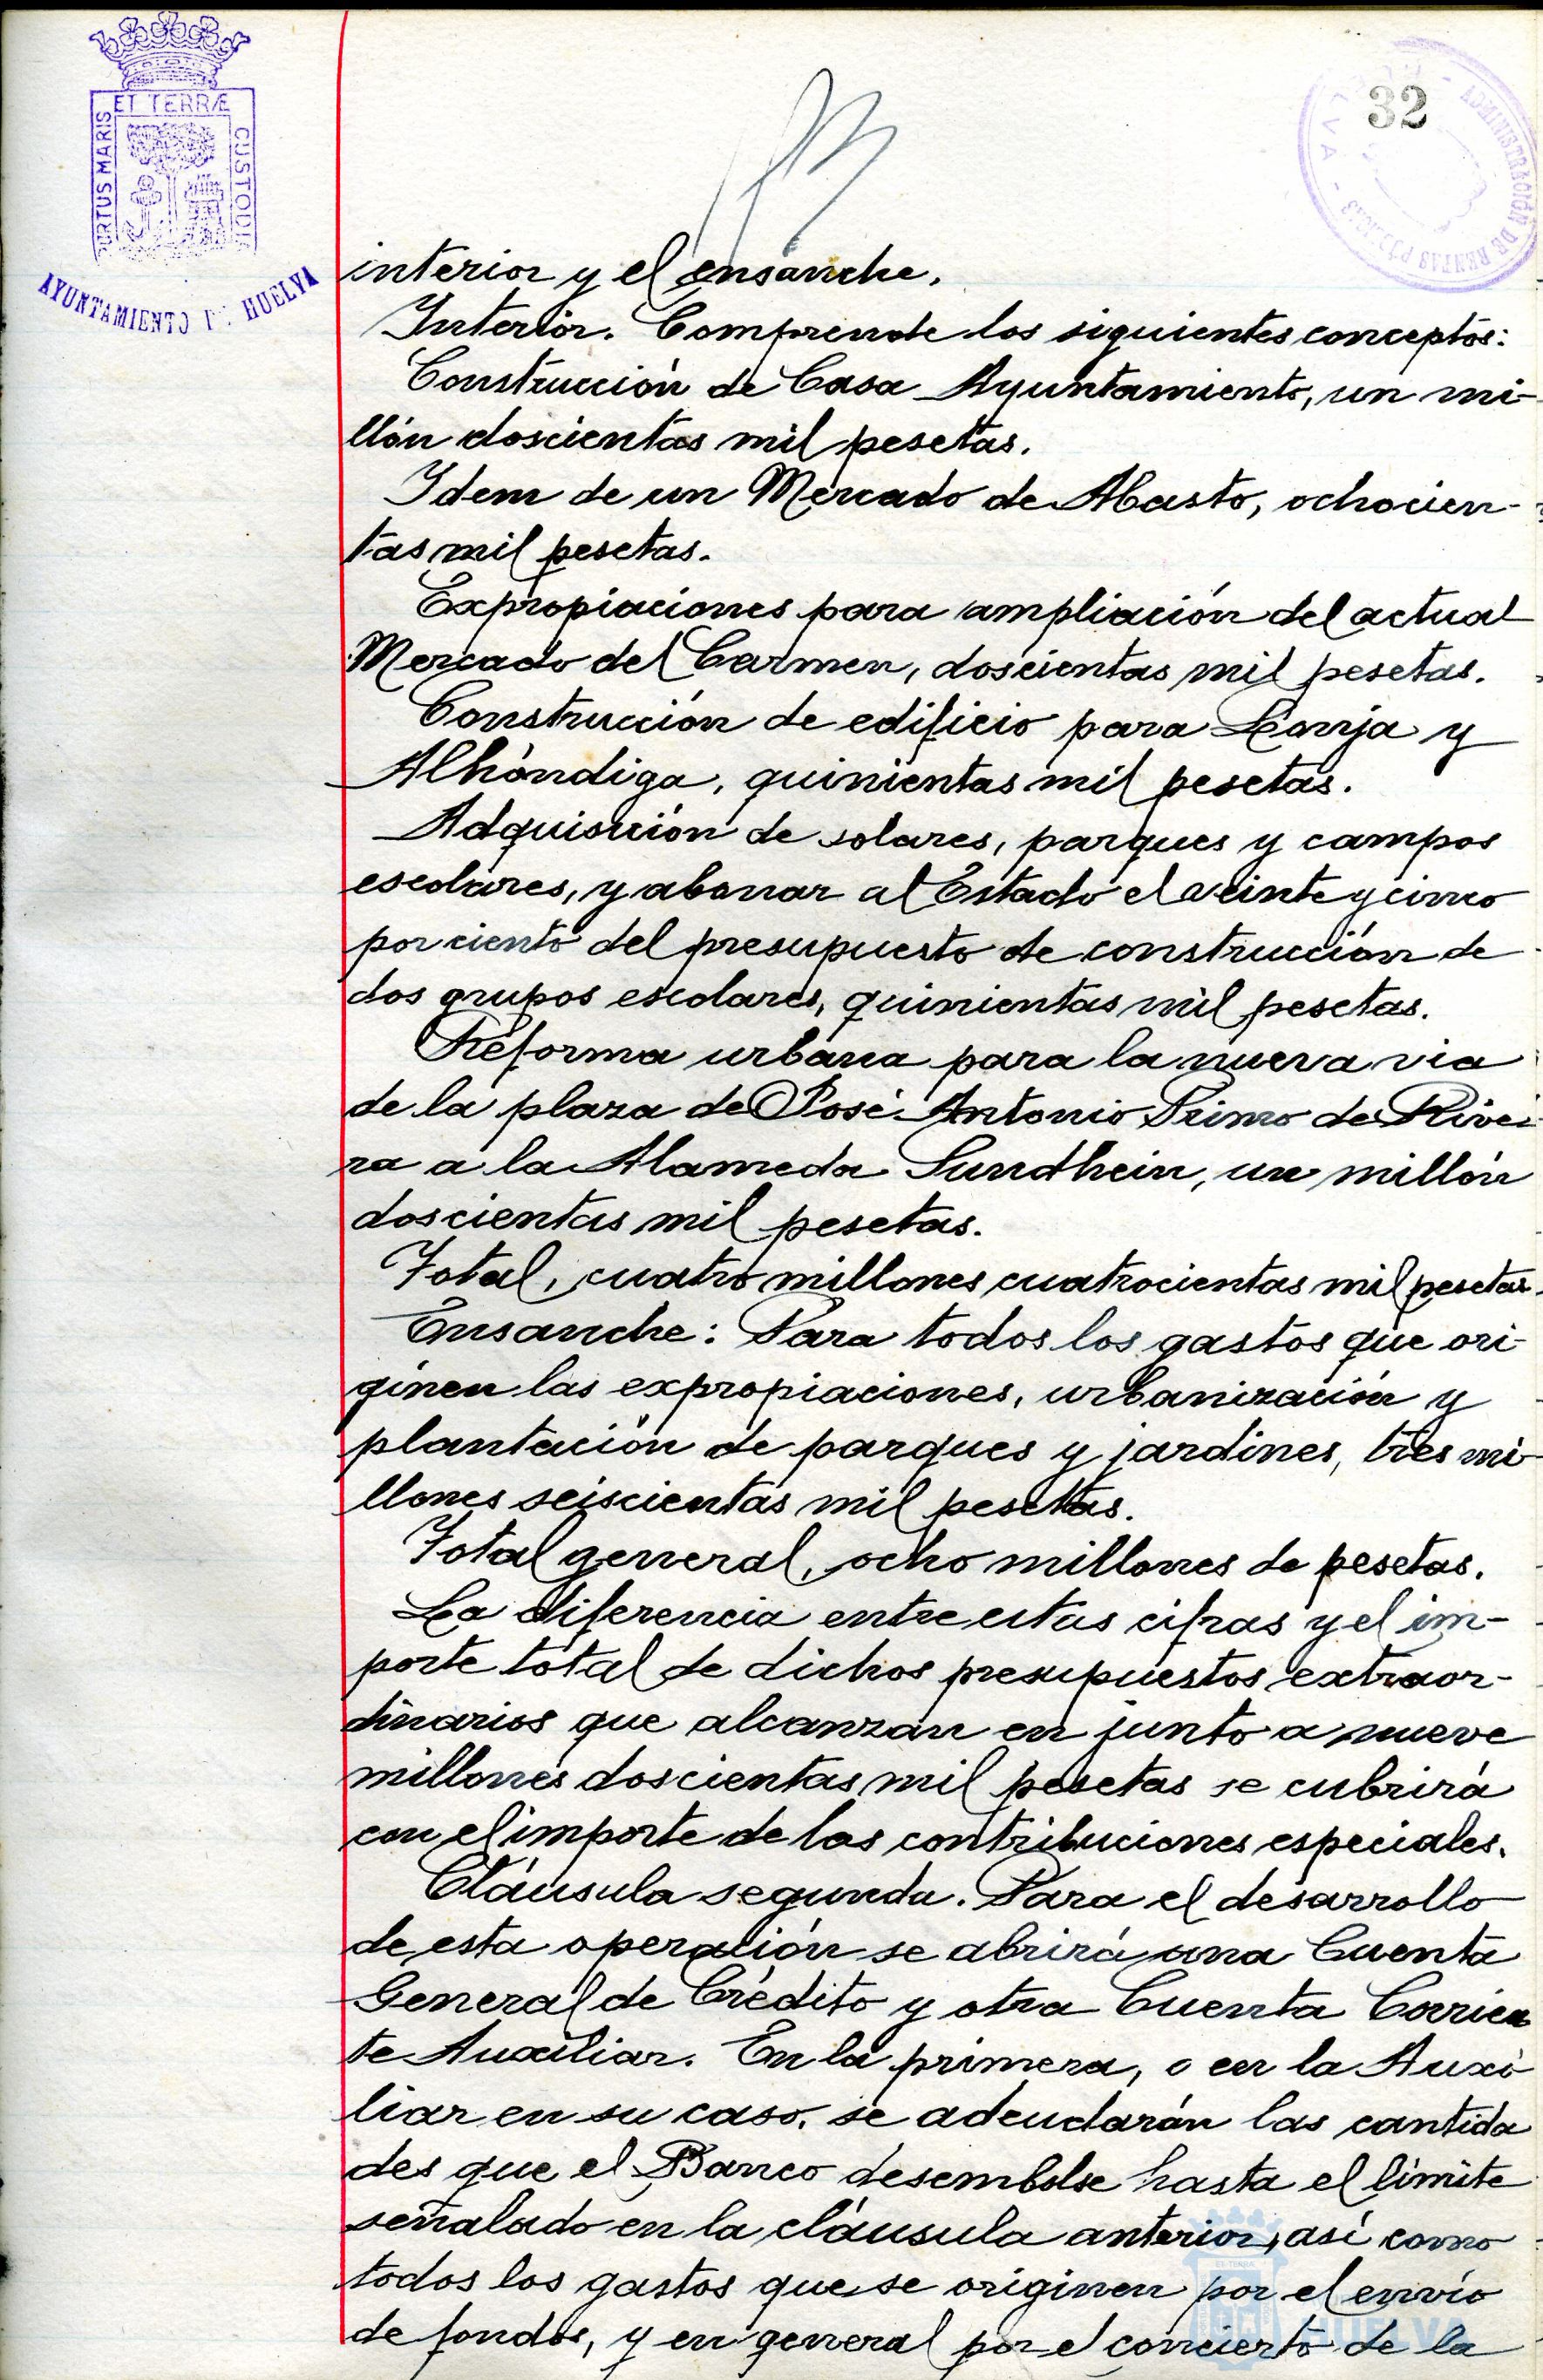 32
PORTUS MARIS
ET TERRÆ
CUSTODIA
AYUNTAMIENTO DE HUELVA
ADMINISTRACIÓN DE RENTAS PÚBLICAS
interior y el ensanche.
Interior. Comprende los siguientes conceptos:
Construcción de Casa Ayuntamiento, un mi-
llón doscientas mil pesetas.
Idem de un Mercado de Abasto, ochocien-
tas mil pesetas.
Expropiaciones para ampliación del actual
Mercado del Carmen, doscientas mil pesetas.
Construcción de edificio para Lonja y
Alhóndiga, quinientas mil pesetas.
Adquisición de solares, parques y campos
escolares, y abonar al Estado el veinte y cinco
por ciento del presupuesto de construcción de
dos grupos escolares, quinientas mil pesetas.
Reforma urbana para la nueva via
de la plaza de José Antonio Primo de Rive-
ra a la Alameda Sundhein, un millón
doscientas mil pesetas.
Total, cuatro millones cuatrocientas mil pesetas.
Ensanche: Para todos los gastos que ori-
ginen las expropiaciones, urbanización y
plantación de parques y jardines, tres mi-
llones seiscientas mil pesetas.
Total general, ocho millones de pesetas.
La diferencia entre estas cifras y el im-
porte total de dichos presupuestos extraor-
dinarios que alcanzan en junto a nueve
millones doscientas mil pesetas se cubrirá
con el importe de las contribuciones especiales.
Cláusula segunda. Para el desarrollo
de esta operación se abrirá una Cuenta
General de Crédito y otra Cuenta Corrien
te Auxiliar. En la primera, o en la Auxi
liar en su caso, se adeudarán las cantida
des que el Banco desembolse hasta el límite
señalado en la cláusula anterior, así como
todos los gastos que se originen por el envío
de fondos, y en general por el concierto de la
HUELVA